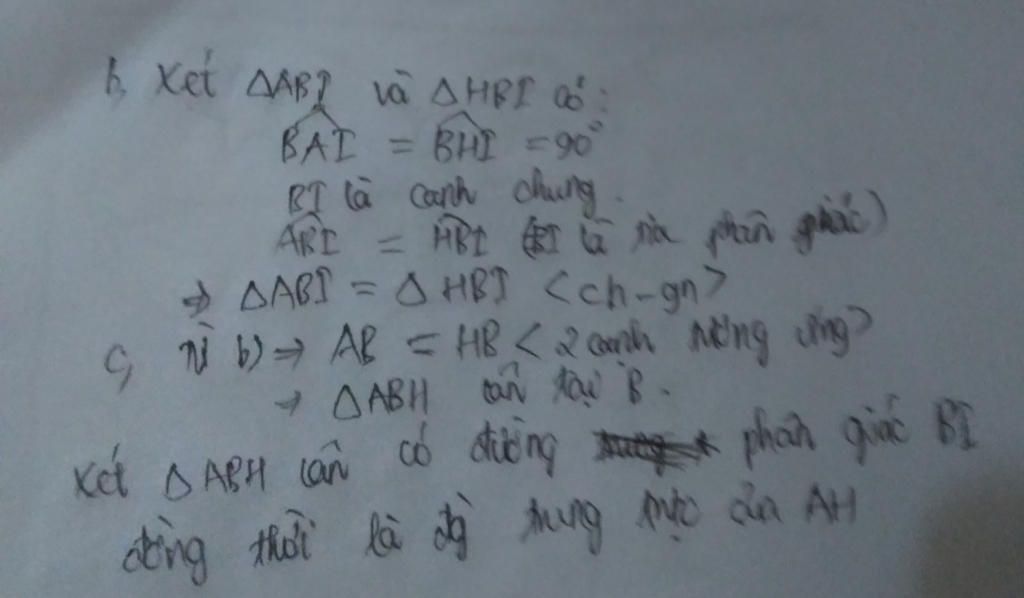 b, Xét ΔABI và ΔHBI có:
BAI = BHI = 90°
BI là cạnh chung.
ABI = HBI (BI là tia phân giác)
⇒ ΔABI = ΔHBI <ch-gn>
c, Từ b) ⇒ AB = HB < 2 cạnh tương ứng>
→ ΔABH cân tại B.
Xét ΔABH cân có đường phân giác BI
đồng thời là đg trung trực của AH